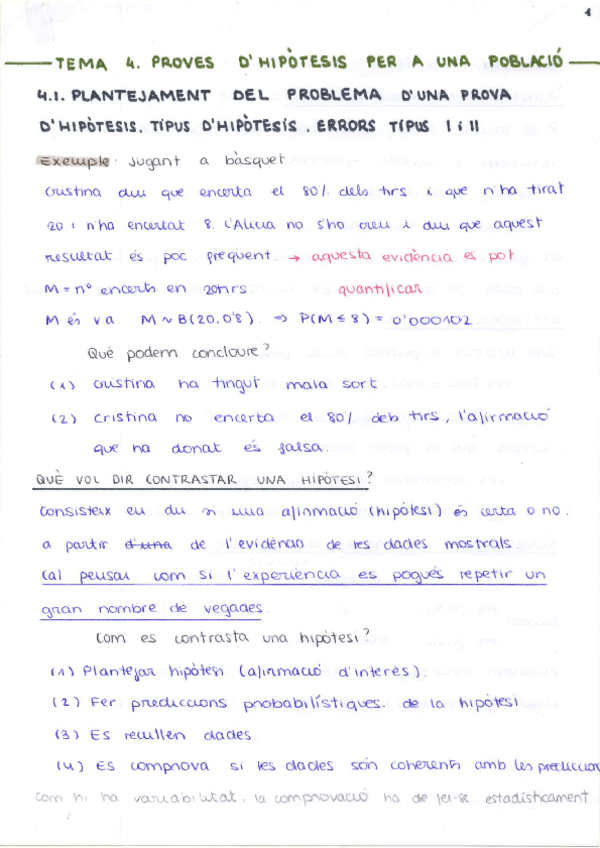 4
TEMA 4. PROVES D'HIPÒTESIS PER A UNA POBLACIÓ
4.1. PLANTEJAMENT DEL PROBLEMA D'UNA PROVA
D'HIPÒTESIS. TIPUS D'HIPÒTESIS. ERRORS TIPUS I i II
Exemple: Jugant a bàsquet
Cristina diu que encerta el 80% dels tirs i que n'ha tirat
20 i n'ha encertat 8. L'Alicia no s'ho creu i diu que aquest
resultat és poc freqüent. → aquesta evidència es pot
M = nº encerts en 20 tirs. quantificar
M és v.a. M ~ B(20, 0'8). ⇒ P(M ≤ 8) = 0'000102.
Què podem concloure?
(1) Cristina ha tingut mala sort.
(2) Cristina no encerta el 80% dels tirs, l'afirmació
que ha donat és falsa.
QUÈ VOL DIR CONTRASTAR UNA HIPÒTESI?
Consisteix en dir si una afirmació (hipòtesi) és certa o no.
a partir d'una de l'evidència de les dades mostrals
Cal pensar com si l'experiència es pogués repetir un
gran nombre de vegades.
Com es contrasta una hipòtesi?
(1) Plantejar hipòtesi (afirmació d'interès).
(2) Fer prediccions probabilístiques de la hipòtesi
(3) Es recullen dades.
(4) Es comprova si les dades són coherents amb les prediccions
com hi ha variabilitat, la comprovació ha de fer-se estadísticament